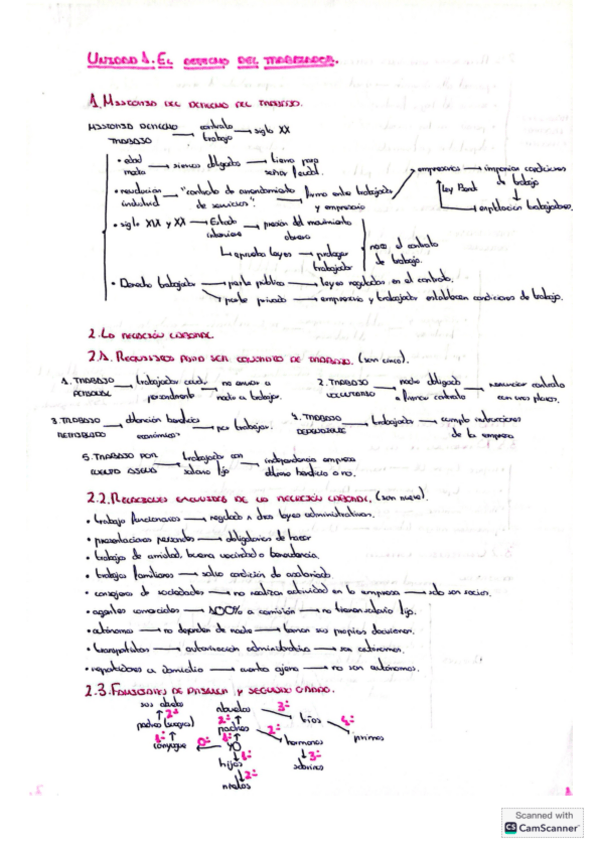 UNIDAD 1. EL DERECHO DEL TRABAJADOR.
1. HISTORIA DEL DERECHO DEL TRABAJO.
HISTORIA DERECHO TRABAJO → contrato trabajo → siglo XX
• edad media → siervo obligado → tierra para señor feudal.
• revolución industrial → "contrato de arrendamiento de servicios" → firma entre trabajador y empresario
empresarios → imponían condiciones de trabajo
explotación trabajadores.
• siglo XIX y XX → Estado interviene → presión del movimiento obrero
↳ aprueba leyes → proteger trabajador
nace el contrato de trabajo.
• Derecho trabajador → parte pública → leyes reguladas en el contrato.
→ parte privada → empresario y trabajador establecen condiciones de trabajo.
2. La RELACIÓN LABORAL
2.1. REQUISITOS PARA SER CONTRATO DE TRABAJO. (son cinco).
1. TRABAJO PERSONAL → trabajador acude personalmente → no enviar a nadie a trabajar.
2. TRABAJO VOLUNTARIO → nadie obligado a firmar contrato → renunciar contrato con unos plazos.
3. TRABAJO RETRIBUIDO → obtención beneficio económico → por trabajar.
4. TRABAJO DEPENDIENTE → trabajador → cumple instrucciones de la empresa
5. TRABAJO POR CUENTA AJENA → trabajador con salario fijo → independencia empresa obtiene beneficio o no.
2.2. RELACIONES EXCLUIDAS DE LA RELACIÓN LABORAL. (son nueve).
• trabajo funcionarios → regulado x otras leyes administrativas.
• prestaciones personales → obligatorias de hacer
• trabajos de amistad, buena vecindad o benevolencia.
• trabajos familiares → salvo condición de asalariado.
• consejeros de sociedades → no realizan actividad en la empresa → solo son socios.
• agentes comerciales → 100% a comisión → no tienen salario fijo.
• autónomos → no dependen de nadie → toman sus propias decisiones.
• transportistas → autorización administrativa → son autónomos.
• repartidores a domicilio → cuenta ajena → no son autónomos.
2.3. FAMILIARES DE PRIMER Y SEGUNDO GRADO.
sus abuelos abuelos 3º
↑ 2º ↑ 2º tíos 4º
padres (suegros) padres 2º primos
↑ 1º ↑ 1º hermanos
cónyuge ← 0º YO ↓ 3º
↓ 1º sobrinos
hijos
↓ 2º
nietos
1
Scanned with
CS CamScanner